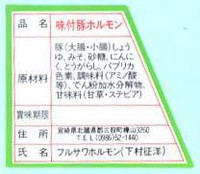 品名 味付豚ホルモン
原材料 豚(大腸・小腸)しょう
ゆ、みそ、砂糖、にんに
く、とうがらし、パプリカ
色素、調味料(アミノ酸
等)、でん粉加水分解物、
甘味料(甘草・ステビア)
賞味期限
住所 宮崎県北諸県郡三股町樺山3260
TEL(0986)52-1440
氏名 フルサワホルモン(下村征洋)